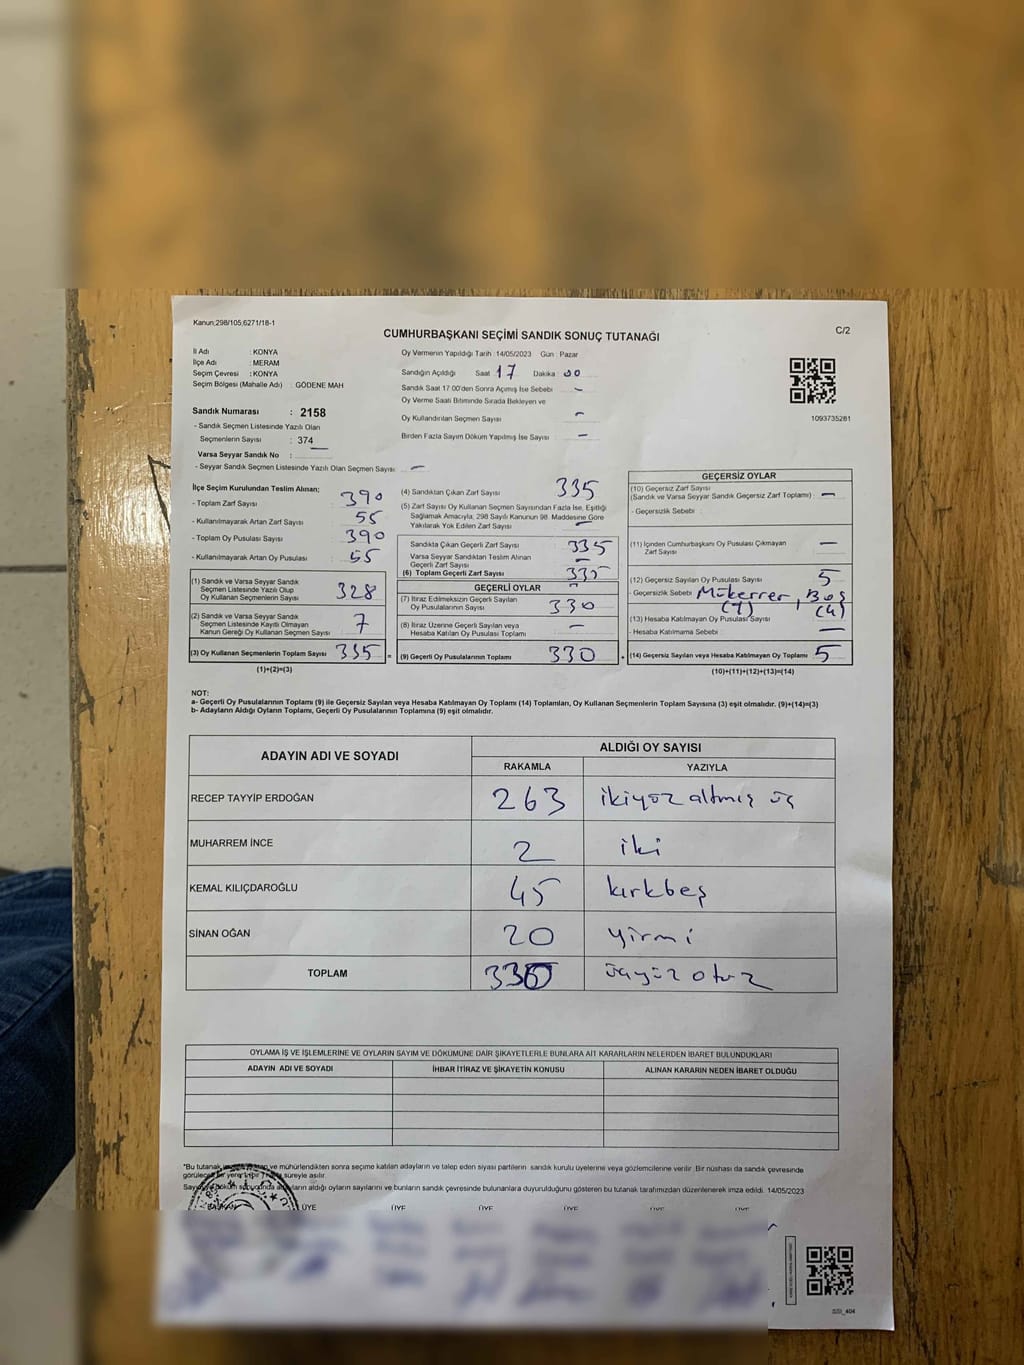 Kanun;298/105;6271/18-1
CUMHURBAŞKANI SEÇİMİ SANDIK SONUÇ TUTANAĞI
C/2
İl Adı : KONYA
İlçe Adı : MERAM
Seçim Çevresi : KONYA
Seçim Bölgesi (Mahalle Adı) : GÖDENE MAH
Sandık Numarası : 2158
- Sandık Seçmen Listesinde Yazılı Olan
Seçmenlerin Sayısı : 374
Varsa Seyyar Sandık No :
- Seyyar Sandık Seçmen Listesinde Yazılı Olan Seçmen Sayısı : -
Oy Vermenin Yapıldığı Tarih : 14/05/2023 Gün : Pazar
Sandığın Açıldığı Saat 17 Dakika 00
Sandık Saat 17.00'den Sonra Açılmış İse Sebebi -
Oy Verme Saati Bitiminde Sırada Bekleyen ve
Oy Kullandırılan Seçmen Sayısı -
Birden Fazla Sayım Döküm Yapılmış İse Sayısı -
1093735281
İlçe Seçim Kurulundan Teslim Alınan;
- Toplam Zarf Sayısı 390
- Kullanılmayarak Artan Zarf Sayısı 55
- Toplam Oy Pusulası Sayısı 390
- Kullanılmayarak Artan Oy Pusulası 55
(1) Sandık ve Varsa Seyyar Sandık
Seçmen Listesinde Yazılı Olup
Oy Kullanan Seçmenlerin Sayısı 328
(2) Sandık ve Varsa Seyyar Sandık
Seçmen Listesinde Kayıtlı Olmayan
Kanun Gereği Oy Kullanan Seçmen Sayısı 7
(3) Oy Kullanan Seçmenlerin Toplam Sayısı 335 =
(1)+(2)=(3)
(4) Sandıktan Çıkan Zarf Sayısı 335
(5) Zarf Sayısı Oy Kullanan Seçmen Sayısından Fazla İse, Eşitliği
Sağlamak Amacıyla; 298 Sayılı Kanunun 98. Maddesine Göre
Yakılarak Yok Edilen Zarf Sayısı -
Sandıkta Çıkan Geçerli Zarf Sayısı 335
Varsa Seyyar Sandıktan Teslim Alınan
Geçerli Zarf Sayısı -
(6) Toplam Geçerli Zarf Sayısı 335
GEÇERLİ OYLAR
(7) İtiraz Edilmeksizin Geçerli Sayılan
Oy Pusulalarının Sayısı 330
(8) İtiraz Üzerine Geçerli Sayılan veya
Hesaba Katılan Oy Pusulası Toplamı -
(9) Geçerli Oy Pusulalarının Toplamı 330 +
GEÇERSİZ OYLAR
(10) Geçersiz Zarf Sayısı
(Sandık ve Varsa Seyyar Sandık Geçersiz Zarf Toplamı) -
- Geçersizlik Sebebi :
(11) İçinden Cumhurbaşkanı Oy Pusulası Çıkmayan
Zarf Sayısı -
(12) Geçersiz Sayılan Oy Pusulası Sayısı 5
- Geçersizlik Sebebi : Mükerrer, Boş
(1) (4)
(13) Hesaba Katılmayan Oy Pusulası Sayısı
- Hesaba Katılmama Sebebi : -
(14) Geçersiz Sayılan veya Hesaba Katılmayan Oy Toplamı 5
(10)+(11)+(12)+(13)=(14)
NOT:
a- Geçerli Oy Pusulalarının Toplamı (9) ile Geçersiz Sayılan veya Hesaba Katılmayan Oy Toplamı (14) Toplamları, Oy Kullanan Seçmenlerin Toplam Sayısına (3) eşit olmalıdır. (9)+(14)=(3)
b- Adayların Aldığı Oyların Toplamı, Geçerli Oy Pusulalarının Toplamına (9) eşit olmalıdır.
ADAYIN ADI VE SOYADI
ALDIĞI OY SAYISI
RAKAMLA YAZIYLA
RECEP TAYYİP ERDOĞAN 263 ikiyüz altmış üç
MUHARREM İNCE 2 iki
KEMAL KILIÇDAROĞLU 45 kırkbeş
SİNAN OĞAN 20 yirmi
TOPLAM 330 üçyüz otuz
OYLAMA İŞ VE İŞLEMLERİNE VE OYLARIN SAYIM VE DÖKÜMÜNE DAİR ŞİKAYETLERLE BUNLARA AİT KARARLARIN NELERDEN İBARET BULUNDUKLARI
ADAYIN ADI VE SOYADI İHBAR İTİRAZ VE ŞİKAYETİN KONUSU ALINAN KARARIN NEDEN İBARET OLDUĞU
*Bu tutanak ve mühürlendikten sonra seçime katılan adayların ve talep eden siyasi partilerin sandık kurulu üyelerine veya gözlemcilerine verilir. Bir nüshası da sandık çevresinde
görülecek bir yere süreyle asılır.
döküm sonucunda adayların aldığı oyların sayılarını ve bunların sandık çevresinde bulunanlara duyurulduğunu gösteren bu tutanak tarafımızdan düzenlenerek imza edildi. 14/05/2023
BAŞKAN ÜYE ÜYE ÜYE ÜYE ÜYE ÜYE